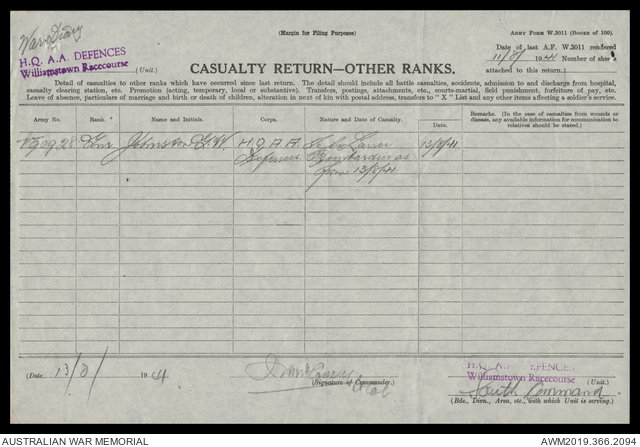 War Diary
H.Q. A.A. DEFENCES
Williamstown Racecourse (Unit.)
(Margin for Filing Purposes)
ARMY FORM W.3011 (Books of 100).
Date of last A.F. W.3011 rendered
11/8/1941 Number of sheets
attached to this return.
CASUALTY RETURN—OTHER RANKS.
Detail of casualties to other ranks which have occurred since last return. The detail should include all battle casualties, accidents, admission to and discharge from hospital,
casualty clearing station, etc. Promotion (acting, temporary, local or substantive). Transfers, postings, attachments, etc., courts-martial, field punishment, forfeiture of pay, etc.
Leave of absence, particulars of marriage and birth or death of children, alteration in next of kin with postal address, transfers to "X" List and any other items affecting a soldier's service.
Army No. Rank. Name and Initials. Corps. Nature and Date of Casualty. Date. Remarks. (In the case of casualties from wounds or
disease, any available information for communication to
relatives should be stated.)
Gnr Johnston H.Q. A.A. To be Lance 13/8/41
Defences Bombardier as
from 13/8/41
(Date 13/8/1941 (Signature of Commander.) Lt Col
H.Q. A.A. DEFENCES
Williamstown Racecourse
South Command
(Bde., Divn., Area, etc., with which Unit is serving.)
AUSTRALIAN WAR MEMORIAL AWM2019.366.2094